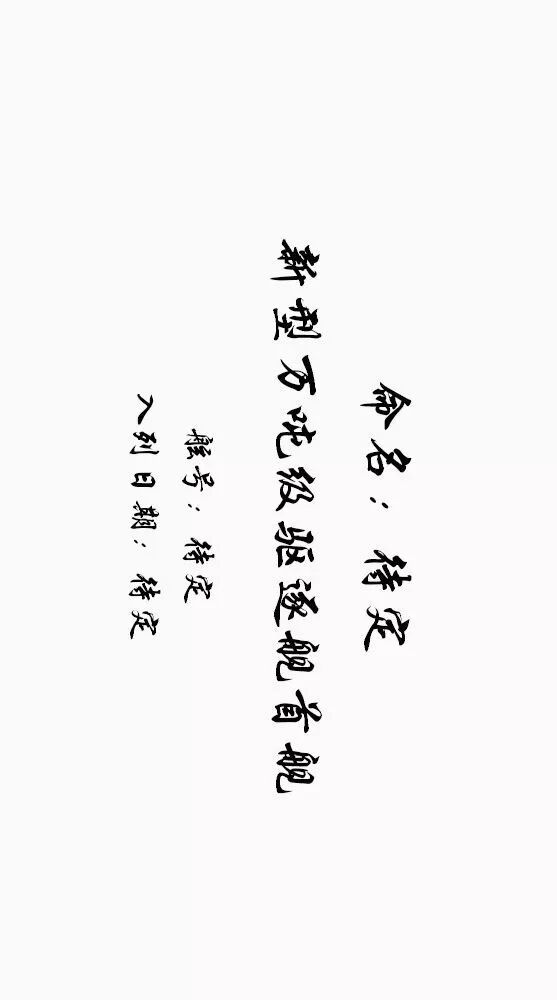 命名：待定
新型万吨级驱逐舰首舰
舷号：待定
入列日期：待定